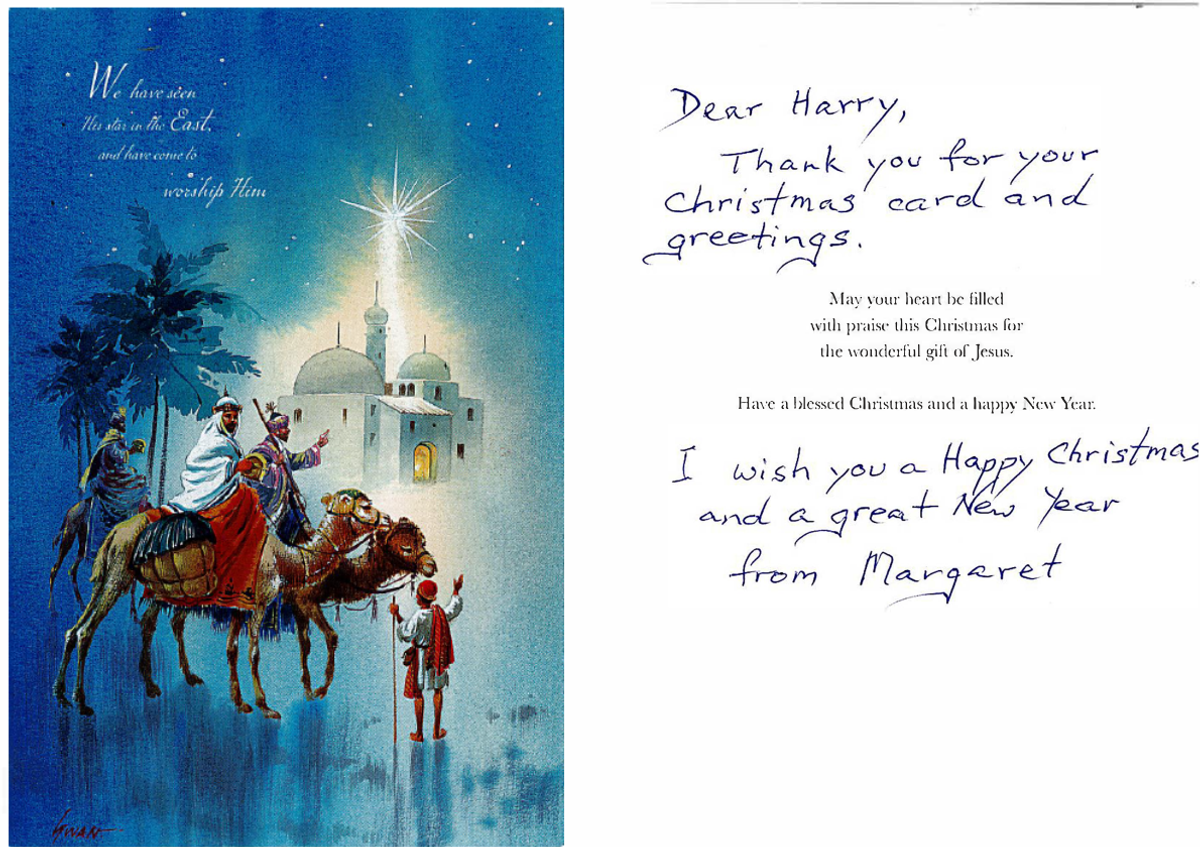 We have seen
His star in the East,
and have come to
worship Him
Dear Harry,
Thank you for your
Christmas card and
greetings.
May your heart be filled
with praise this Christmas for
the wonderful gift of Jesus.
Have a blessed Christmas and a happy New Year.
I wish you a Happy Christmas
and a great New Year
from Margaret